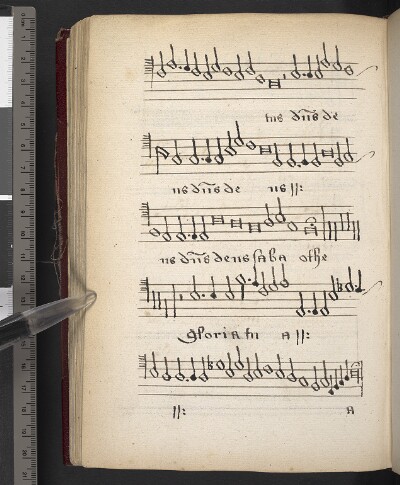 tus dn̄s de
us dn̄s de us ||:
us dn̄s deus saba othe
gloria tu a ||:
||: a